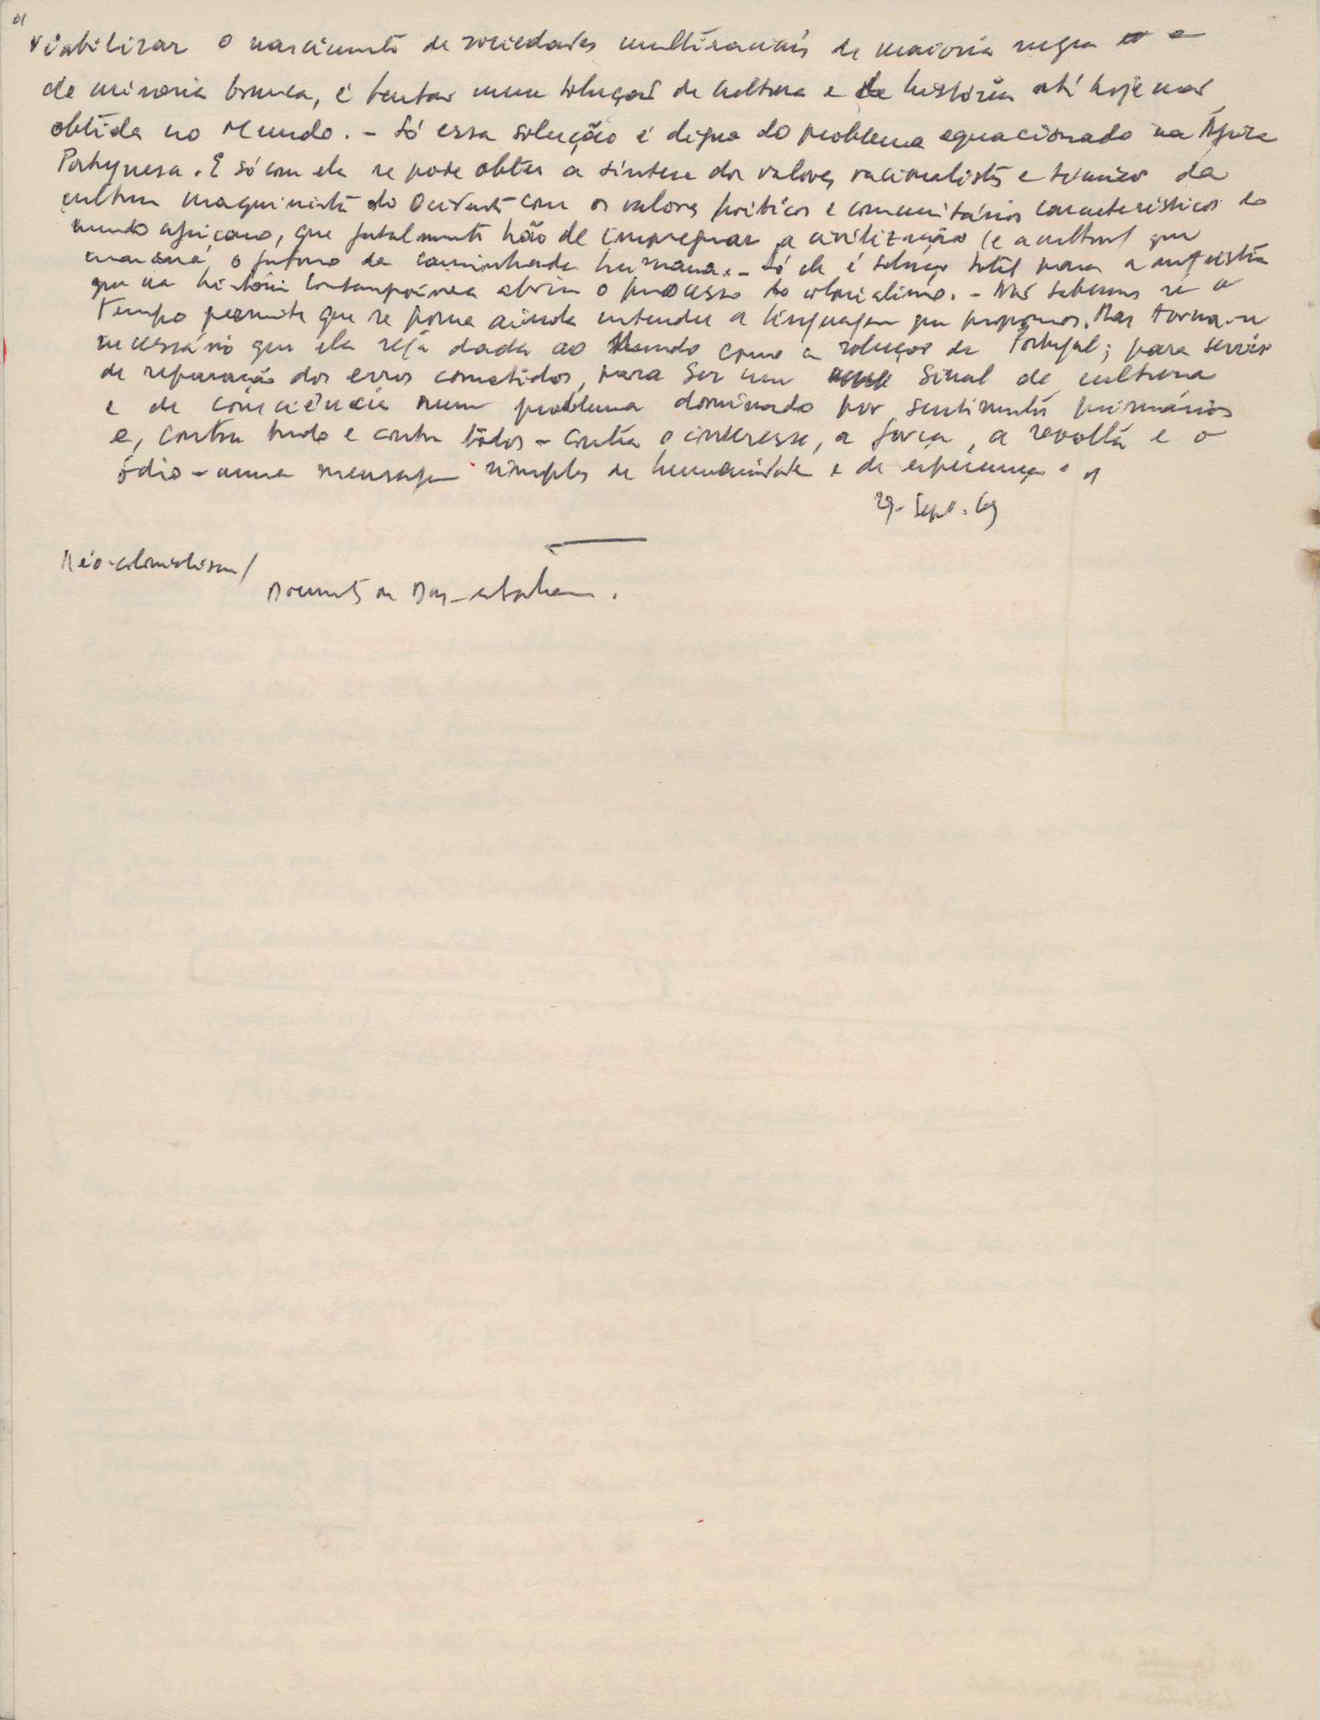 viabilizar o nascimento de sociedades multiraciais de maioria negra e
de minoria branca, é tentar uma solução de cultura e de história até hoje não
obtida no Mundo. - Só essa solução é digna do problema equacionado na África
Portuguesa. E só com ela se pode obter a síntese dos valores racionalistas e técnicos da
cultura maquinista do Ocidente com os valores poéticos e comunitários característicos do
mundo africano, que fatalmente hão de impregnar a civilização (e a cultura) que
marcará o futuro da caminhada humana. - Só ela é solução útil para a angústia
que na história contemporânea abriu o processo do colonialismo. - Não sabemos se o
tempo permite que se possa ainda entender a linguagem que propomos. Mas torna-se
necessário que ela seja dada ao Mundo como a solução de Portugal; para servir
de reparação dos erros cometidos, para ser um sinal de cultura
e de consciência num problema dominado por sentimentos primários
e, contra tudo e contra todos - contra o interesse, a força, a revolta e o
ódio - uma mensagem simples de humanidade e de esperança.
29. Sept. 69
Néo-colonialism/